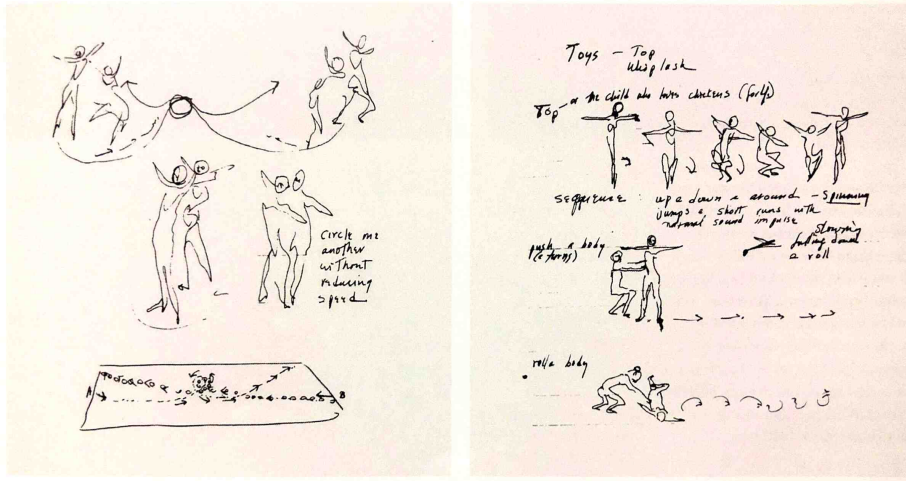 circle one
another
without
reducing
speed
A
B
Toys – Top
Whiplash
Top – a the child who loves chickens
Sequence: up & down & around – spinning
jumps & short runs with
normal sound impulse
slowing
falling down
a roll
push a body
(& turns)
roll a body